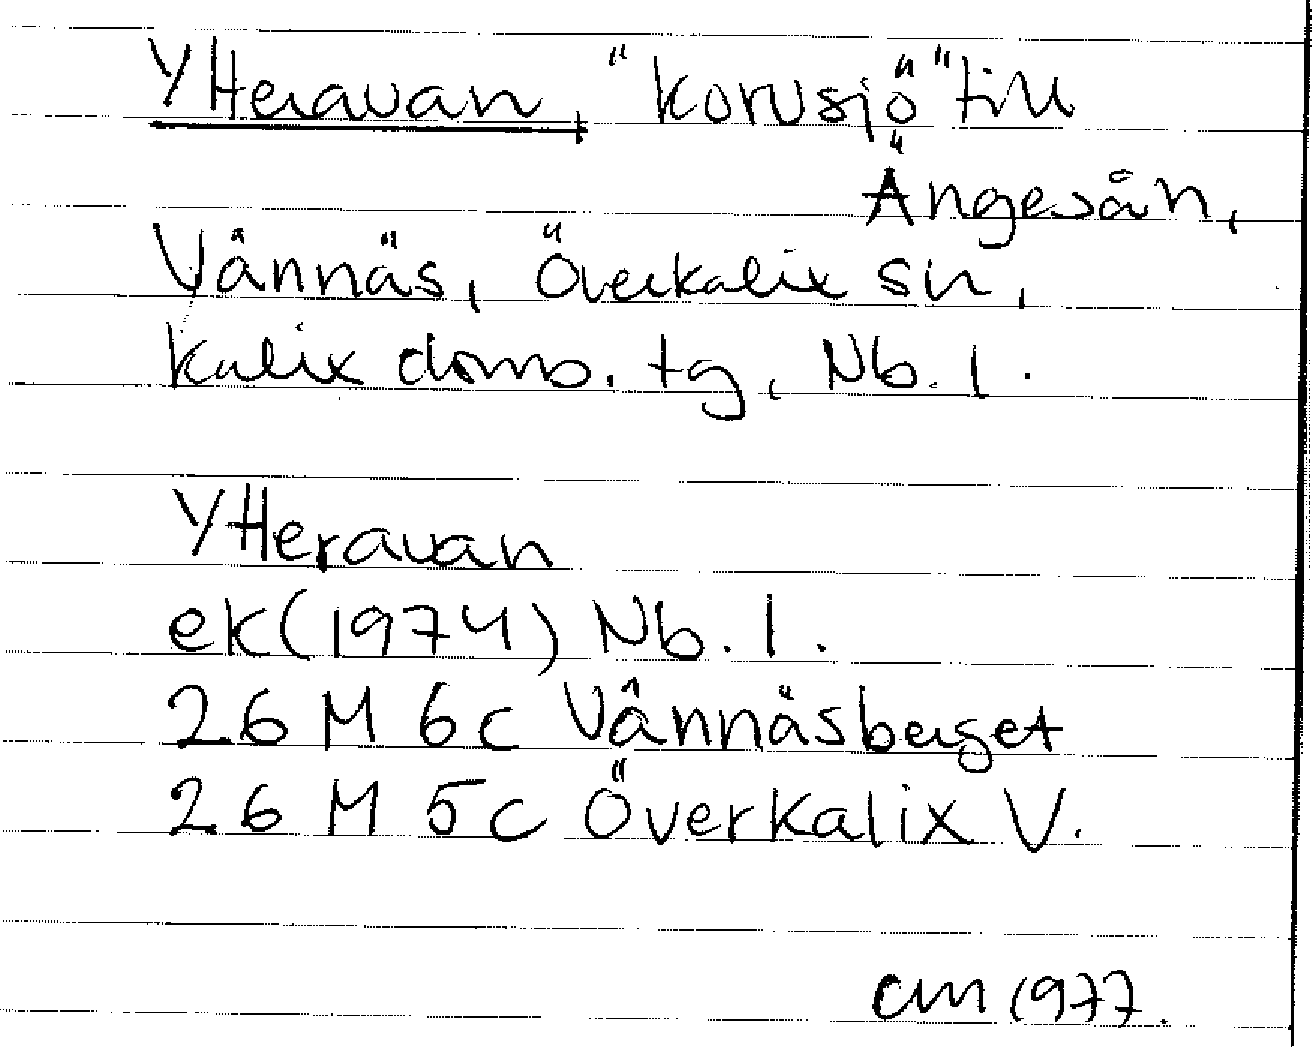 Ytteravan, "korvsjö" till
Ängesån,
Vännäs, Överkalix sn,
Kalix doms. tg, Nb. l.
Ytteravan
ek (1974) Nb. l.
26 M 6c Vännäsberget
26 M 5c Överkalix V.
CM 1977.